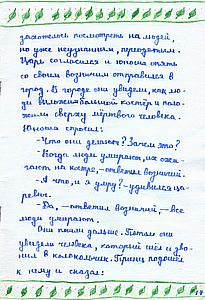 захотелось посмотреть на людей,
но уже неузнанным, переодетым.
Царь согласился и юноша опять
со своим возничим отправился в
город. В городе они увидели, как лю-
ди сложили большой костёр и поло-
жили сверху мёртвого человека.
Юноша спросил:
-Что они делают? Зачем это?
-Когда люди умирают, их сжи-
гают на костре, -ответил возничий.
-А что, и я умру? -удивился ца-
ревич.
-Да, -ответил возничий, -все
люди умирают.
Они пошли дальше. Потом они
увидели человека, который шёл и зво-
нил в колокольчик. Принц подошёл
к нему и сказал: